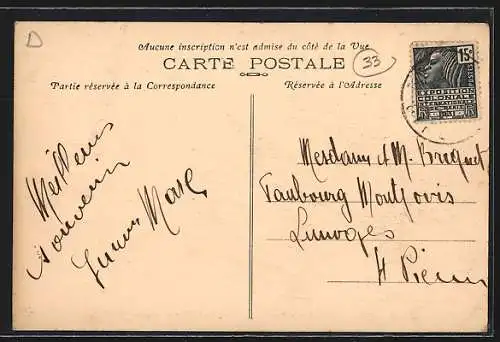 D
Aucune inscription n'est admise du côté de la Vue
CARTE POSTALE
33
Partie réservée à la Correspondance
Réservée à l'Adresse
15c
POSTES
EXPOSITION
COLONIALE
INTERNATIONALE
PARIS 1931
Meilleurs
souvenirs
Mesdames & M. Breguet
Faubourg Montjovis
Limoges
Hte Vienne